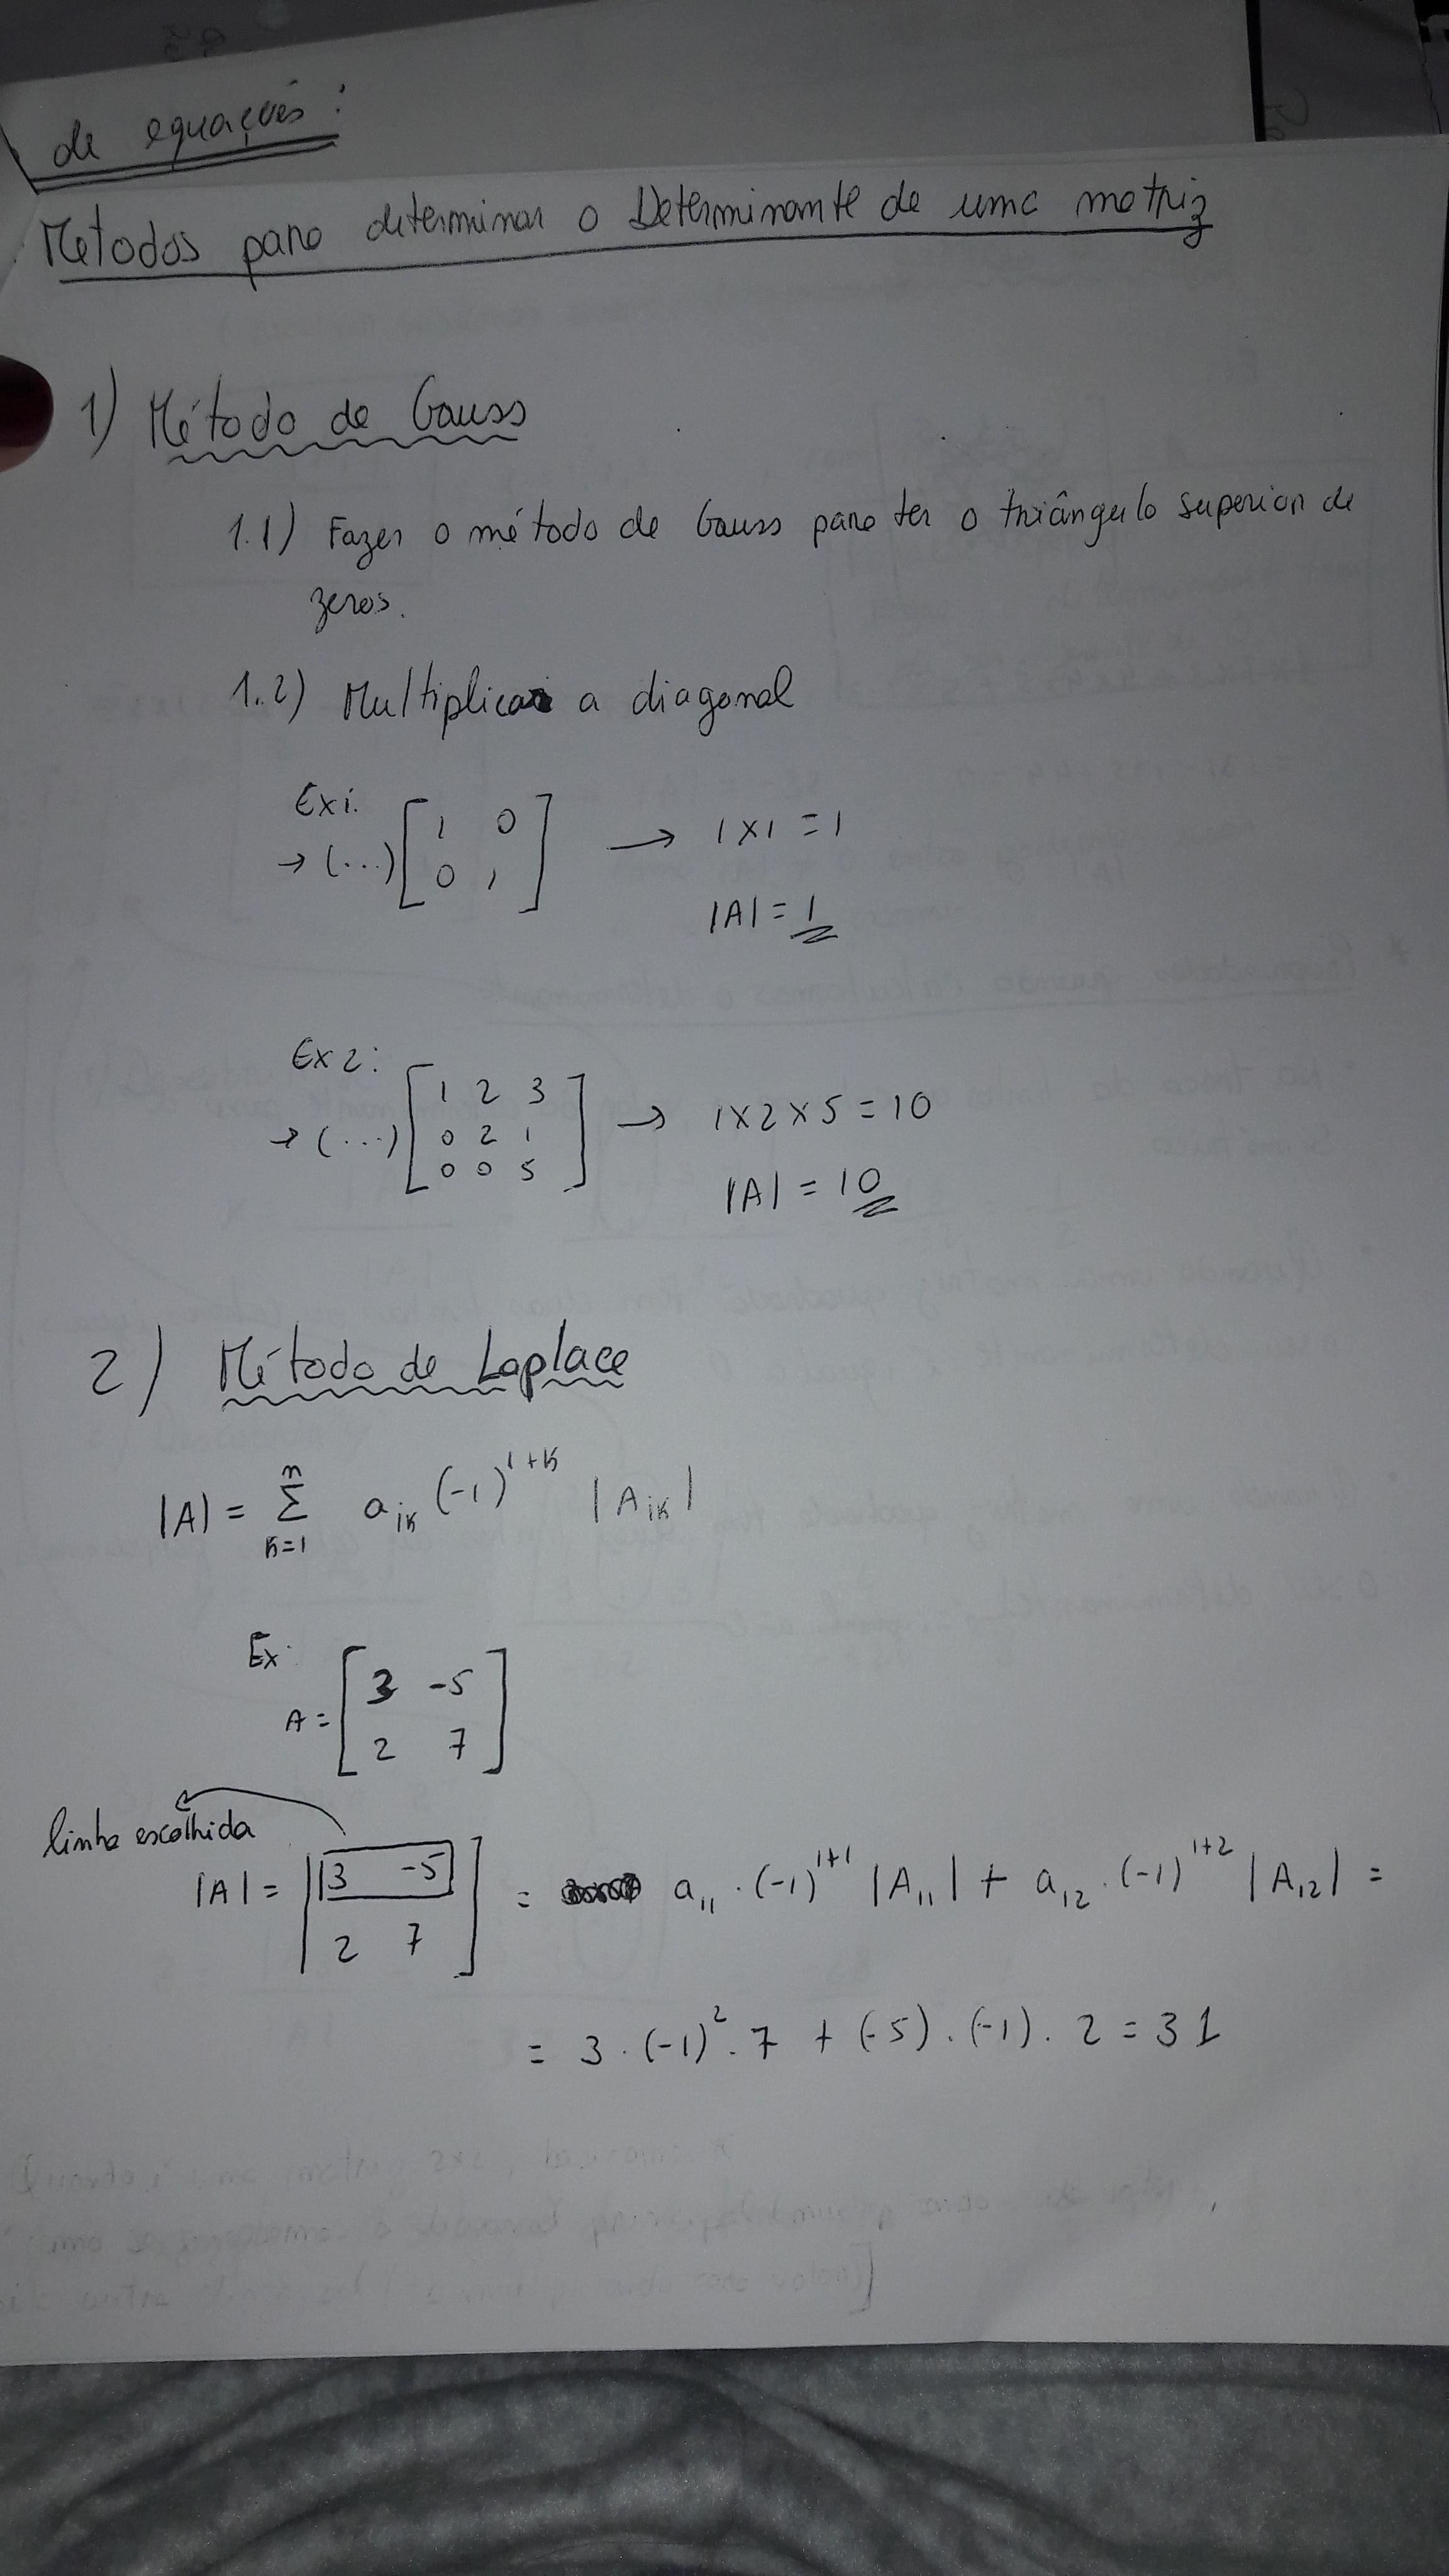 de equações:
Métodos para determinar o Determinante de uma matriz
1) Método de Gauss
1.1) Fazer o método de Gauss para ter o triângulo superior de
zeros.
1.2) Multiplicar a diagonal
Ex1:
→ (...) [1 0
0 1] → 1x1 = 1
|A| = 1
Ex2:
→ (...) [1 2 3
0 2 1
0 0 5] → 1x2x5 = 10
|A| = 10
2) Método de Laplace
|A| = Σ_{k=1}^{n} a_{ik} (-1)^{1+k} |A_{ik}|
Ex:
A = [3 -5
2 7]
linha escolhida
|A| = |3 -5
2 7] = a₁₁ . (-1)^{1+1} |A₁₁| + a₁₂ . (-1)^{1+2} |A₁₂| =
= 3 . (-1)² . 7 + (-5) . (-1) . 2 = 31